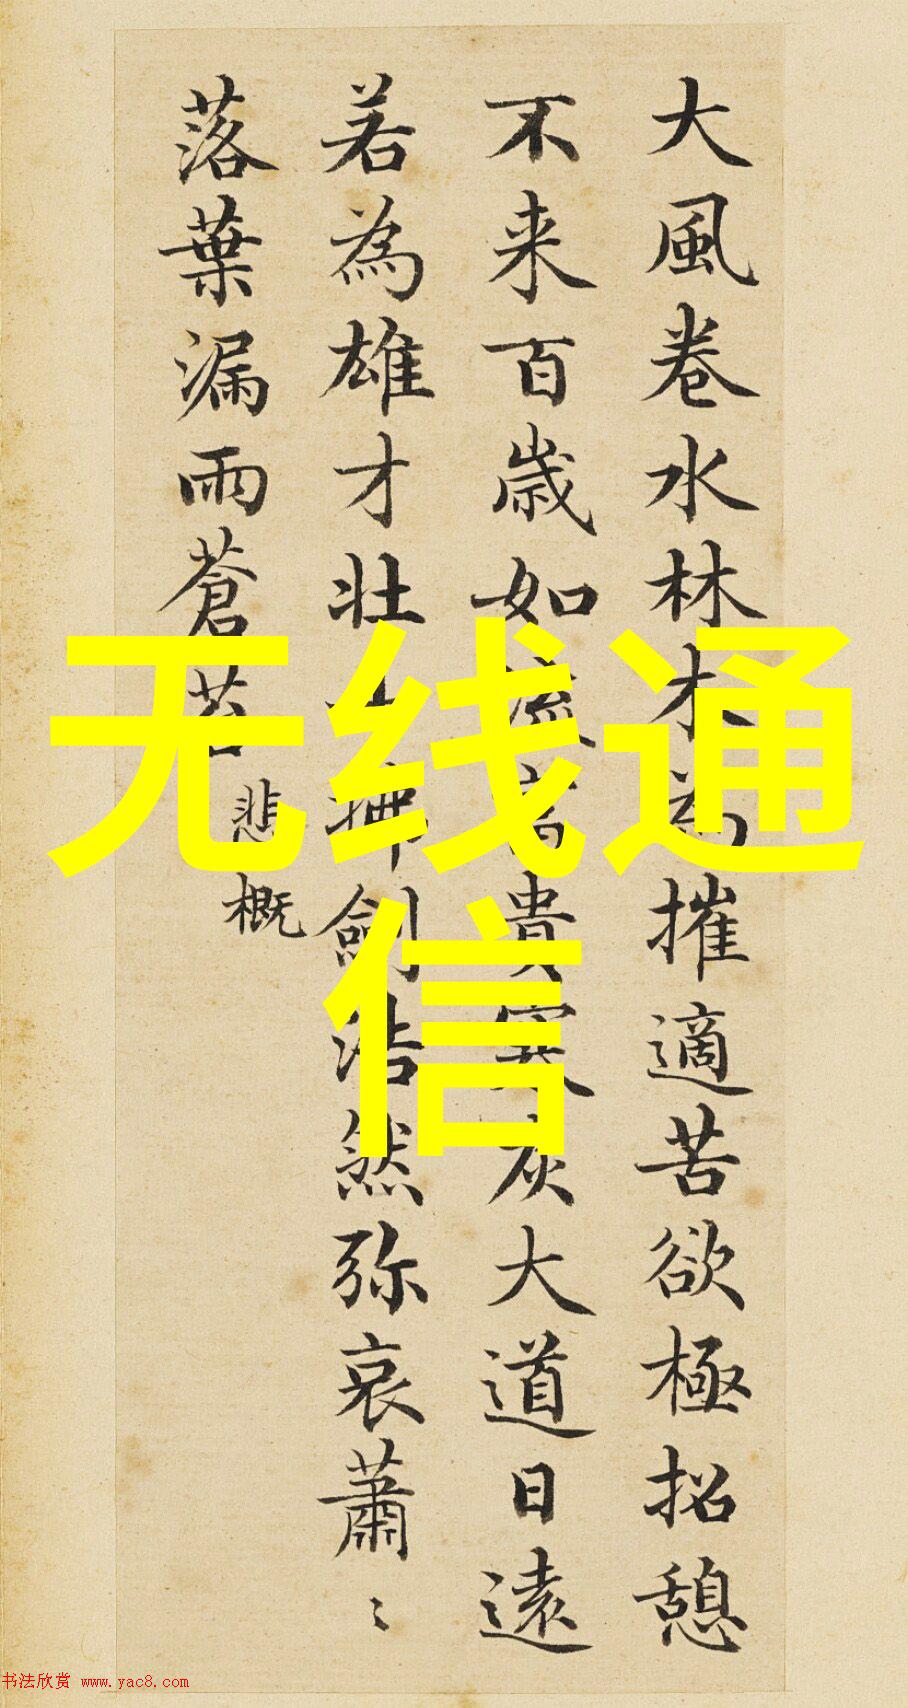 大風卷水林木為摧適苦欲極招憩
不来百歳如流貴灰大道日遠
若為雄才壯士拂劍浩然弥哀蕭〻
落葉漏雨蒼苔
悲概
无线通
信
书法欣赏 www.yac8.com